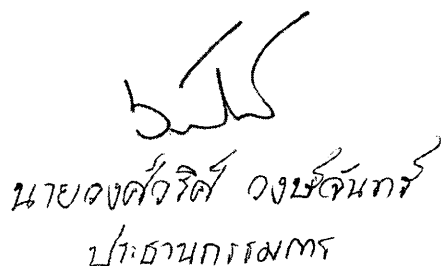 นายวงศ์วริศ วงษ์จันทร์
ประธานกรรมการ